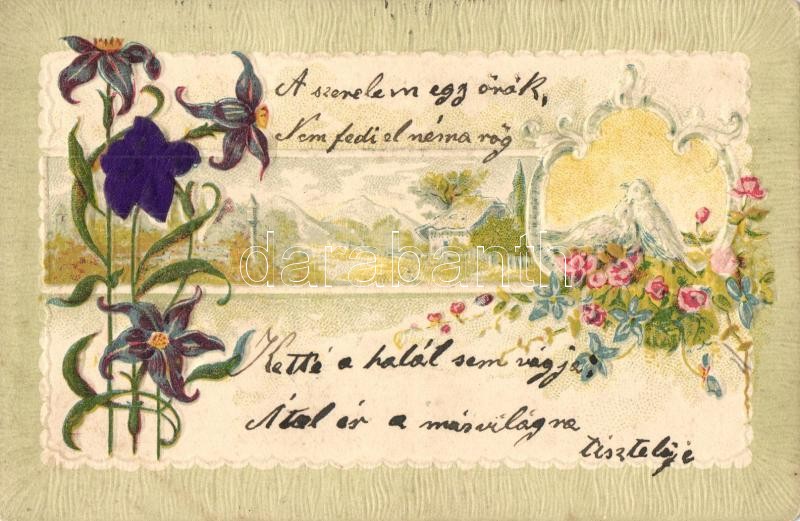 A szerelem egy örök,
Nem fedi el néma rög
darabanth
Ketté a halál sem vágja;
Átal ér a másvilágra
tisztelője